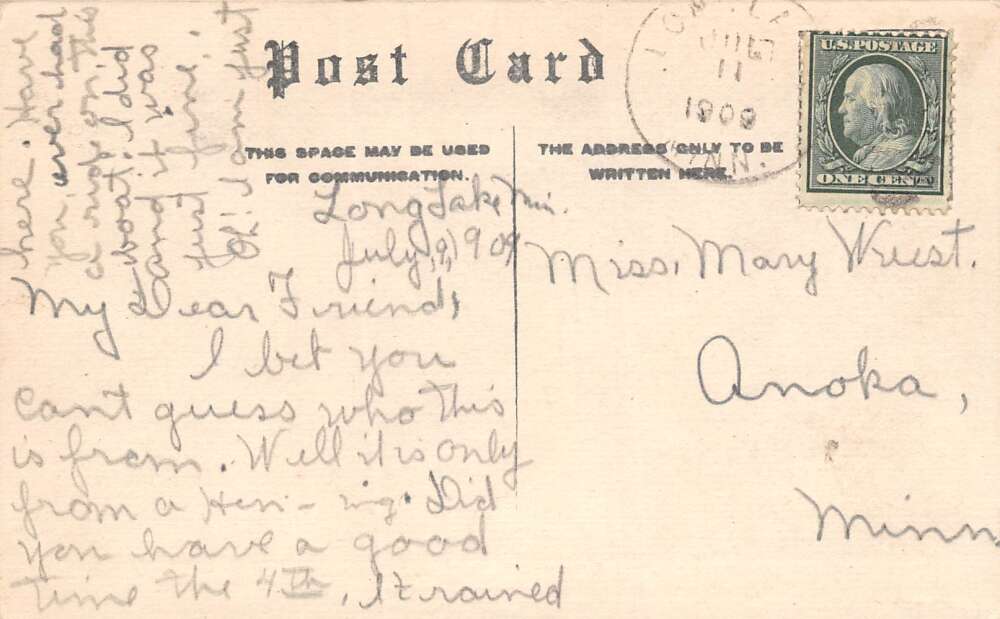 Post Card
THIS SPACE MAY BE USED
FOR COMMUNICATION.
THE ADDRESS ONLY TO BE
WRITTEN HERE.
11
1909
U.S. POSTAGE
ONE CENT
Long Lake Min.
July, 9, 1909
My Dear Friend,
I bet you
can't guess who this
is from. Well it is only
from a Hen - ing. Did
you have a good
time the 4th, It rained
here. Have
you ever had
a ride on this
boat, I did
and it was
just fine.
Oh! I am just
Miss, Mary Wriest.
Anoka,
Minn.